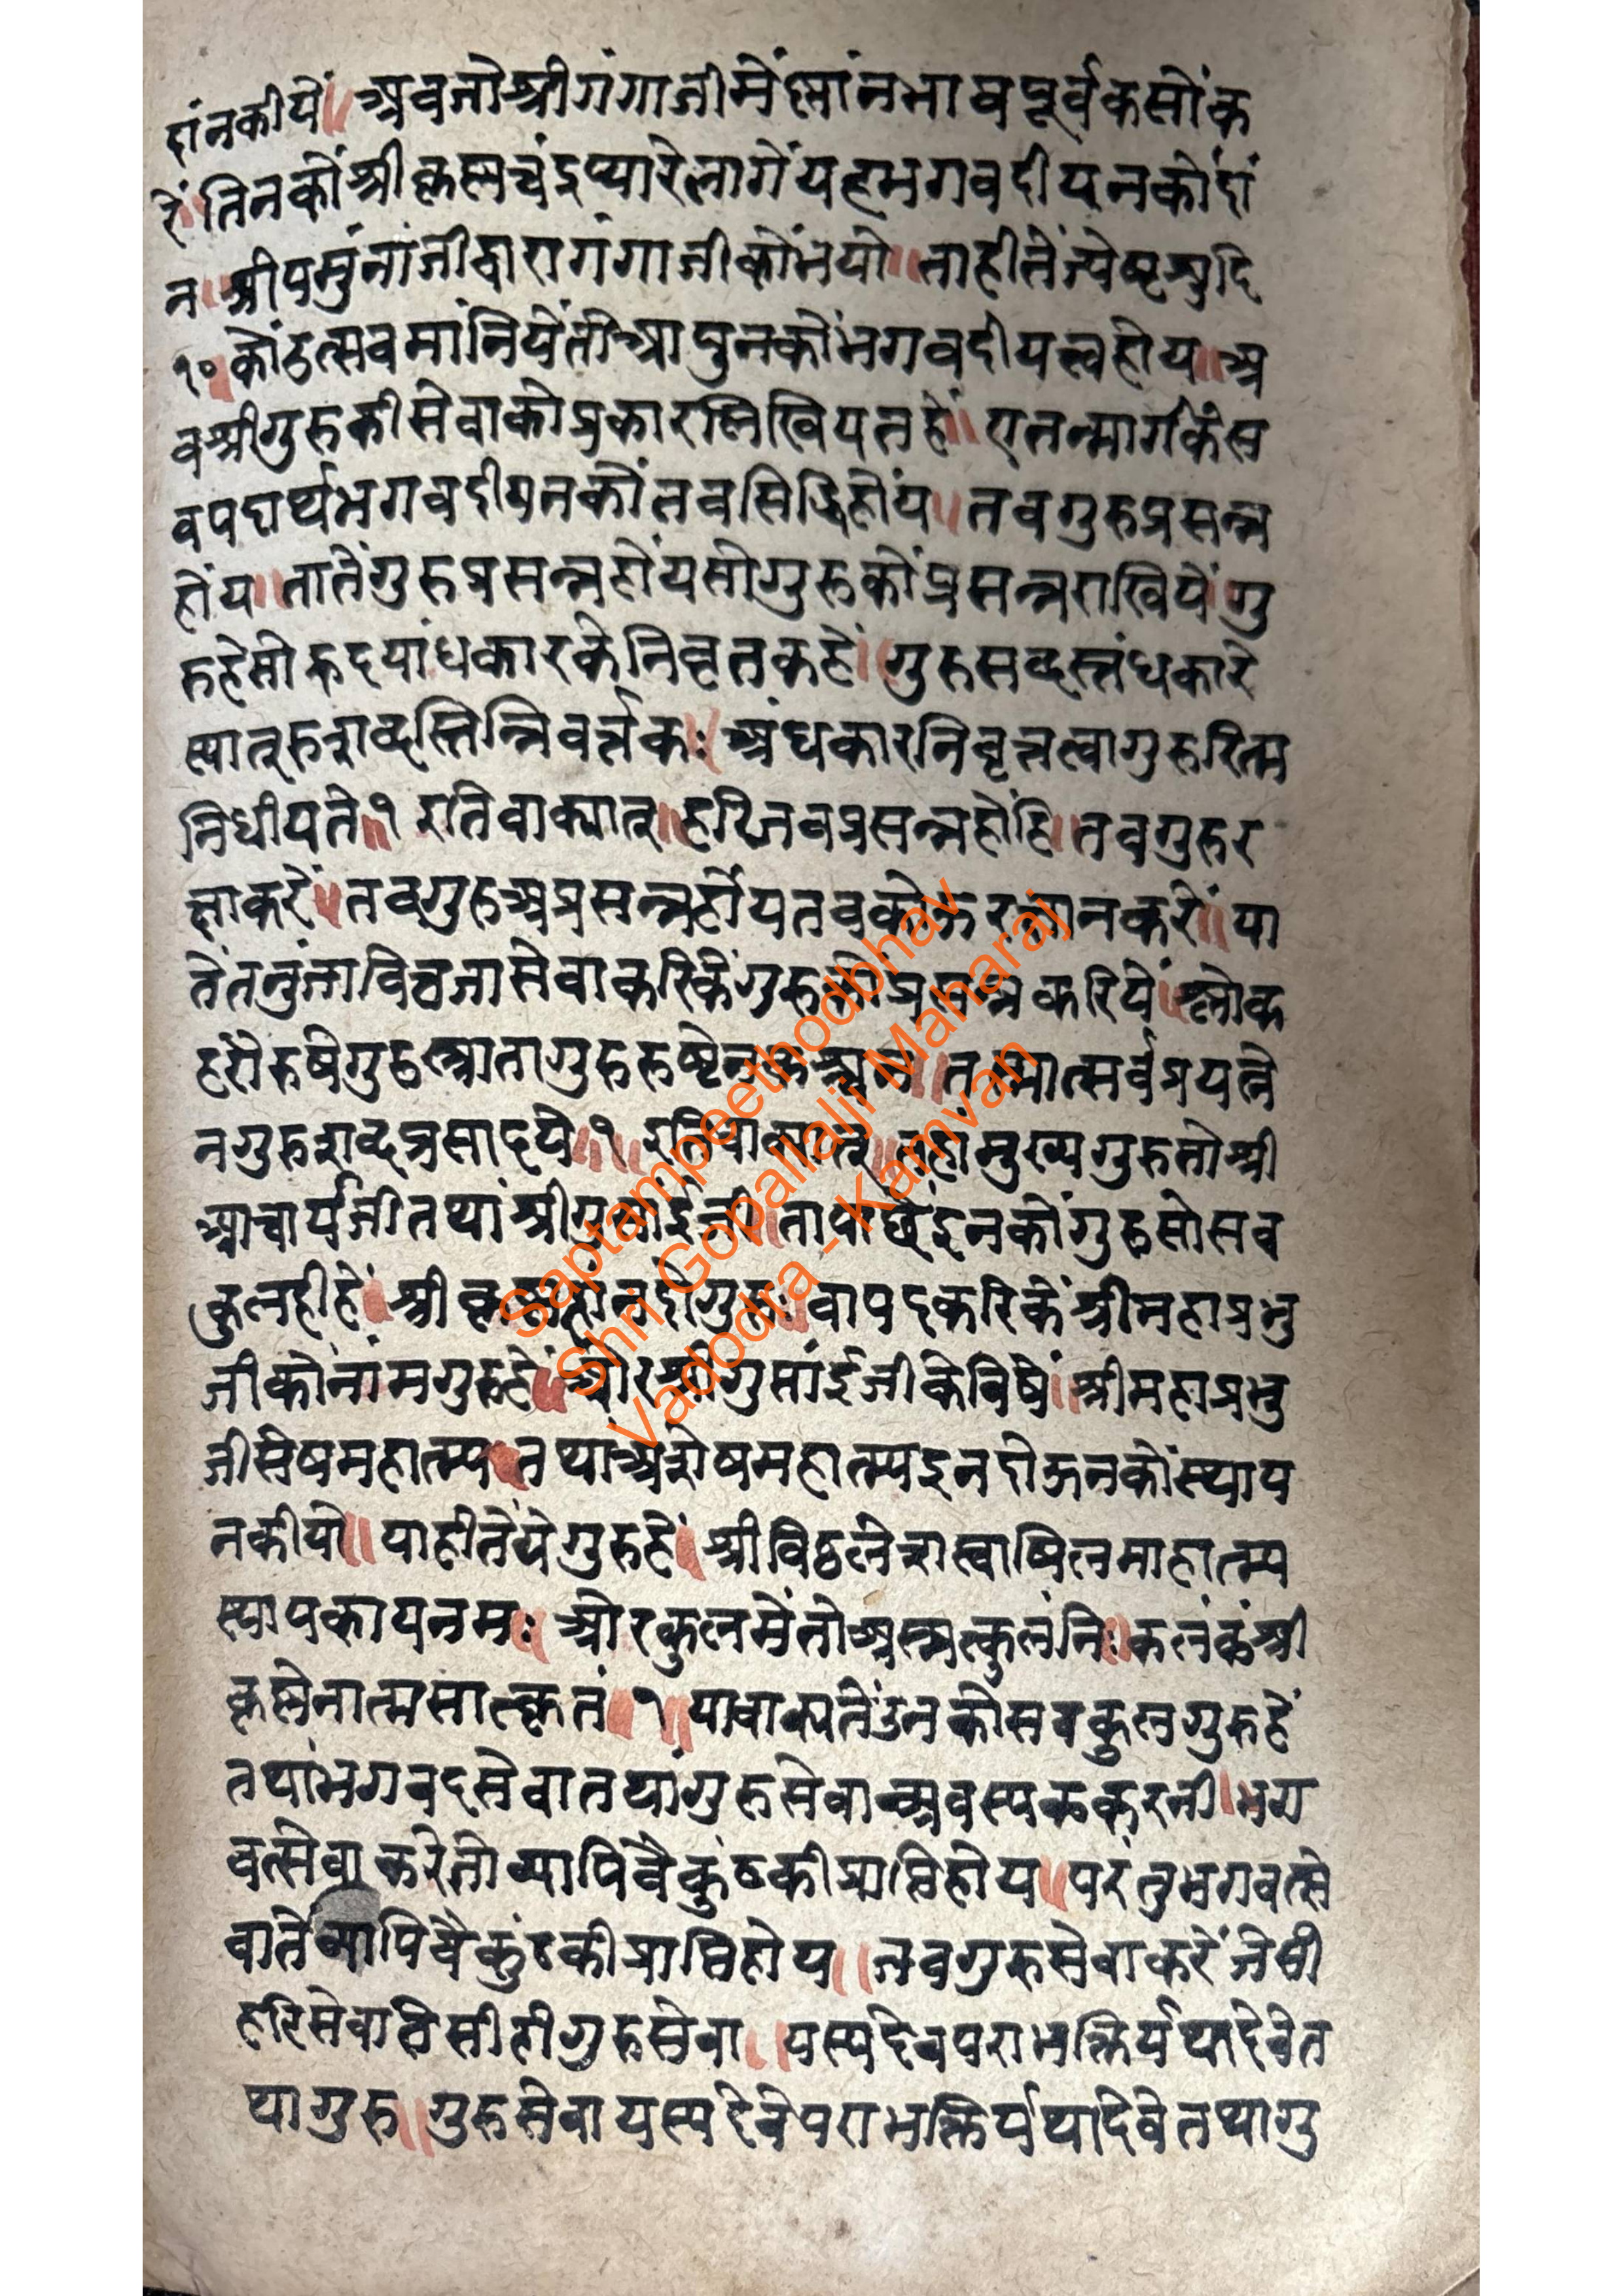 दांनकीयें॥ अवजोश्रीगंगाजीमेंस्नांनभावपूर्वकसोंक
रें॥तिनकोंश्रीकृष्णचंद्रप्यारेलागेंयहभगवदीयनकोंदां
न॥श्रीयमुंनांजीद्वारागंगाजीकोंभयो॥ताहीतेंज्येष्टशुदि
१०कोंउत्सवमांनियेंतोआपुनकोंभगवदीयत्वहोय॥अ
वश्रीगुरुकीसेवाकोप्रकारलिखियतहें॥एतन्मार्गकेंस
वपदार्थभगवदीयनकोंतवसिद्धिहोंय॥तवगुरुप्रसन्न
होंय॥तातेंगुरुप्रसन्नहोंयसोगुरुकोंप्रसन्नराखियें॥गु
रुहेसोहृदयांधकारकेनिवृतकहें॥गुरुसब्दस्त्नंधकारे
स्यात्रुरुशब्दस्तिन्निवर्त्तकः॥अंधकारनिवृत्तत्वागुरुरित्म
निधीयते॥१ इतिवाक्यात्॥हरिजवप्रसन्नहोंहि॥तवगुरुर
क्षाकरें॥तवगुरुअप्रसन्नहोंयतवकोऊरक्षानकरें॥या
तेंतनुंजावित्तजासेवाकरिकेंगुरुकोंप्रसन्नकरियें॥श्लोक
हरोरुषेगुरुस्त्रातागुरुरुष्टेनकश्चन॥तस्मात्सर्वप्रयत्ने
नगुरुशब्दप्रसादये॥१॥इतिवाक्यात्॥तहांमुख्यगुरुतोश्री
आचार्यजीतथांश्रीगुसांईजी॥तापाछेंइनकोंगुरुसोसव
कुलहीहें॥श्रीकृष्णज्ञानदोगुरुः॥वापदकरिकेंश्रीमहाप्रभु
जीकोनांमगुरुहें॥ओरश्रीगुसांईजीकेविषें॥श्रीमहाप्रभु
जीसेषमहात्म्य॥तथाअशेषमहात्म्यइनदोऊनकोंस्थाप
नकीयो॥याहीतेंयेगुरुहें॥श्रीविठ्ठलेशस्वाषिलमाहात्म्य
स्थापकायनमः॥ओरकुलमेंतोअस्मत्कुलंनिः॥कलंकंश्री
कृष्णेनात्मसात्कृतं॥१॥यावाक्यतेंउनकोसवकुलगुरुहें
तथांभगवदसेवातथांगुरुसेवाआवस्यककरनी॥भग
वत्सेवाकरेतोव्यापिवैकुंठकीप्राप्तिहोय॥परंतुभगवत्से
वातेंव्यापिवैकुंठकीप्राप्तिहोय॥जवगुरुसेवाकरेंजेसी
हरिसेवातेसीहीगुरुसेवा॥यस्यदेवपराभक्तिर्यथादेवेत
थागुरु॥गुरुसेवायस्यदेवेपराभक्तिर्यथादेवेतथागु
Saptampeethodbhav
Shri Gopallalji Maharaj
Vadodra - Kamvan